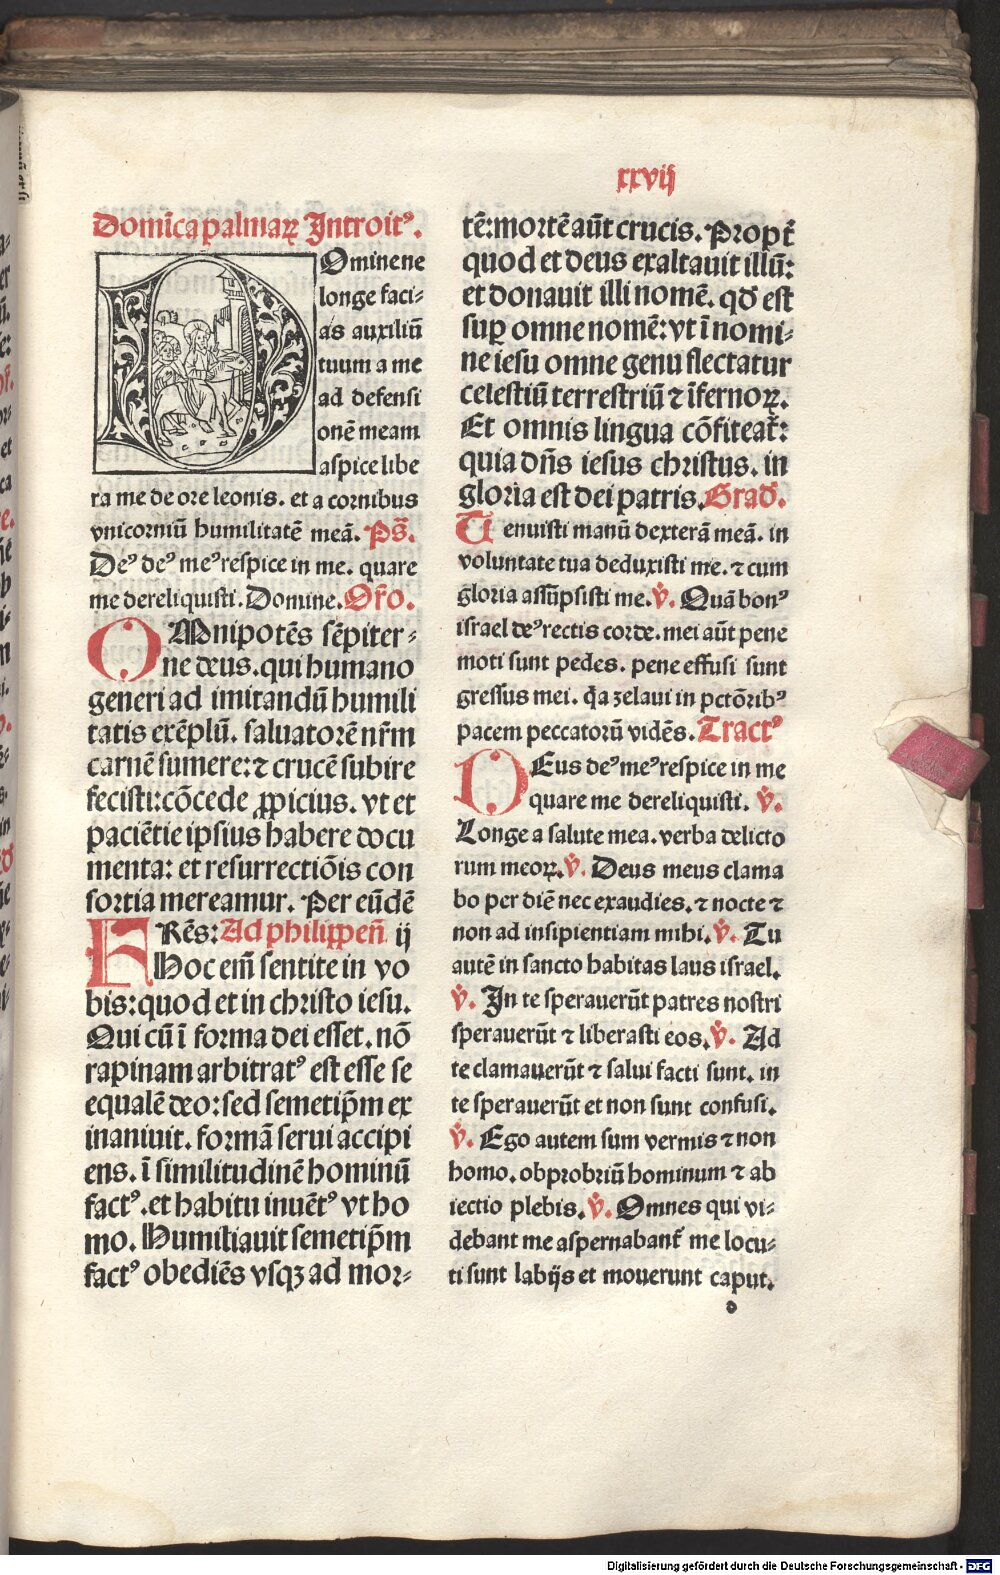 xxvij
Domīca palmaꝝ Introitꝰ.
Omine ne
longe faci⸗
as auxiliū
tuum a me
ad defensi
onē meam
aspice libe
ra me de ore leonis. et a cornibus
vnicorniū humilitatē meā. Ps̄.
Deꝰ deꝰ meꝰ respice in me. quare
me dereliquisti. Domine. Or̄o.
OMnipotēs sēpiter⸗
ne deus. qui humano
generi ad imitandū humili
tatis exēplū. saluatorē nr̄m
carnē sumere: ⁊ crucē subire
fecisti: cōcede ꝓpicius. vt et
paciētie ipsius habere docu
menta: et resurrectiōis con
sortia mereamur. Per eūdē
FRēs: Ad philippen̄ ij
Hoc em̄ sentite in vo
bis: quod et in christo iesu.
Qui cū ī forma dei esset. nō
rapinam arbitratꝰ est esse se
equalē deo: sed semetip̄m ex
inaniuit. formā serui accipi
ens. ī similitudinē hominū
factꝰ. et habitu inuētꝰ vt ho
mo. Humiliauit semetip̄m
factꝰ obediēs vsqꝫ ad mor⸗
tē: mortē aūt crucis. Propt̄
quod et deus exaltauit illū:
et donauit illi nomē. qd̄ est
suꝑ omne nomē: vt ī nomi⸗
ne iesu omne genu flectatur
celestiū terrestriū ⁊ īfernoꝝ.
Et omnis lingua cōfiteat̄:
quia dn̄s iesus christus. in
gloria est dei patris. Grad̄.
Tenuisti manū dexterā meā. in
voluntate tua deduxisti me. ⁊ cum
gloria assūpsisti me. v̄. Quā bonꝰ
israel deꝰ rectis corde. mei aūt pene
moti sunt pedes. pene effusi sunt
gressus mei. q̄a zelaui in pctōribꝰ
pacem peccatorū vidēs. Tractꝰ
DEus deꝰ meꝰ respice in me
quare me dereliquisti. v̄.
Longe a salute mea. verba delicto
rum meoꝝ. v̄. Deus meus clama
bo per diē nec exaudies. ⁊ nocte ⁊
non ad insipientiam mihi. v̄. Tu
autē in sancto habitas laus israel.
v̄. In te sperauerūt patres nostri
sperauerūt ⁊ liberasti eos. v̄. Ad
te clamauerūt ⁊ salui facti sunt. in
te sperauerūt et non sunt confusi.
v̄. Ego autem sum vermis ⁊ non
homo. obprobriū hominum ⁊ ab
iectio plebis. v̄. Omnes qui vi⸗
debant me aspernabant̄ me locu⸗
ti sunt labijs et mouerunt caput.
d
Digitalisierung gefördert durch die Deutsche Forschungsgemeinschaft - DFG